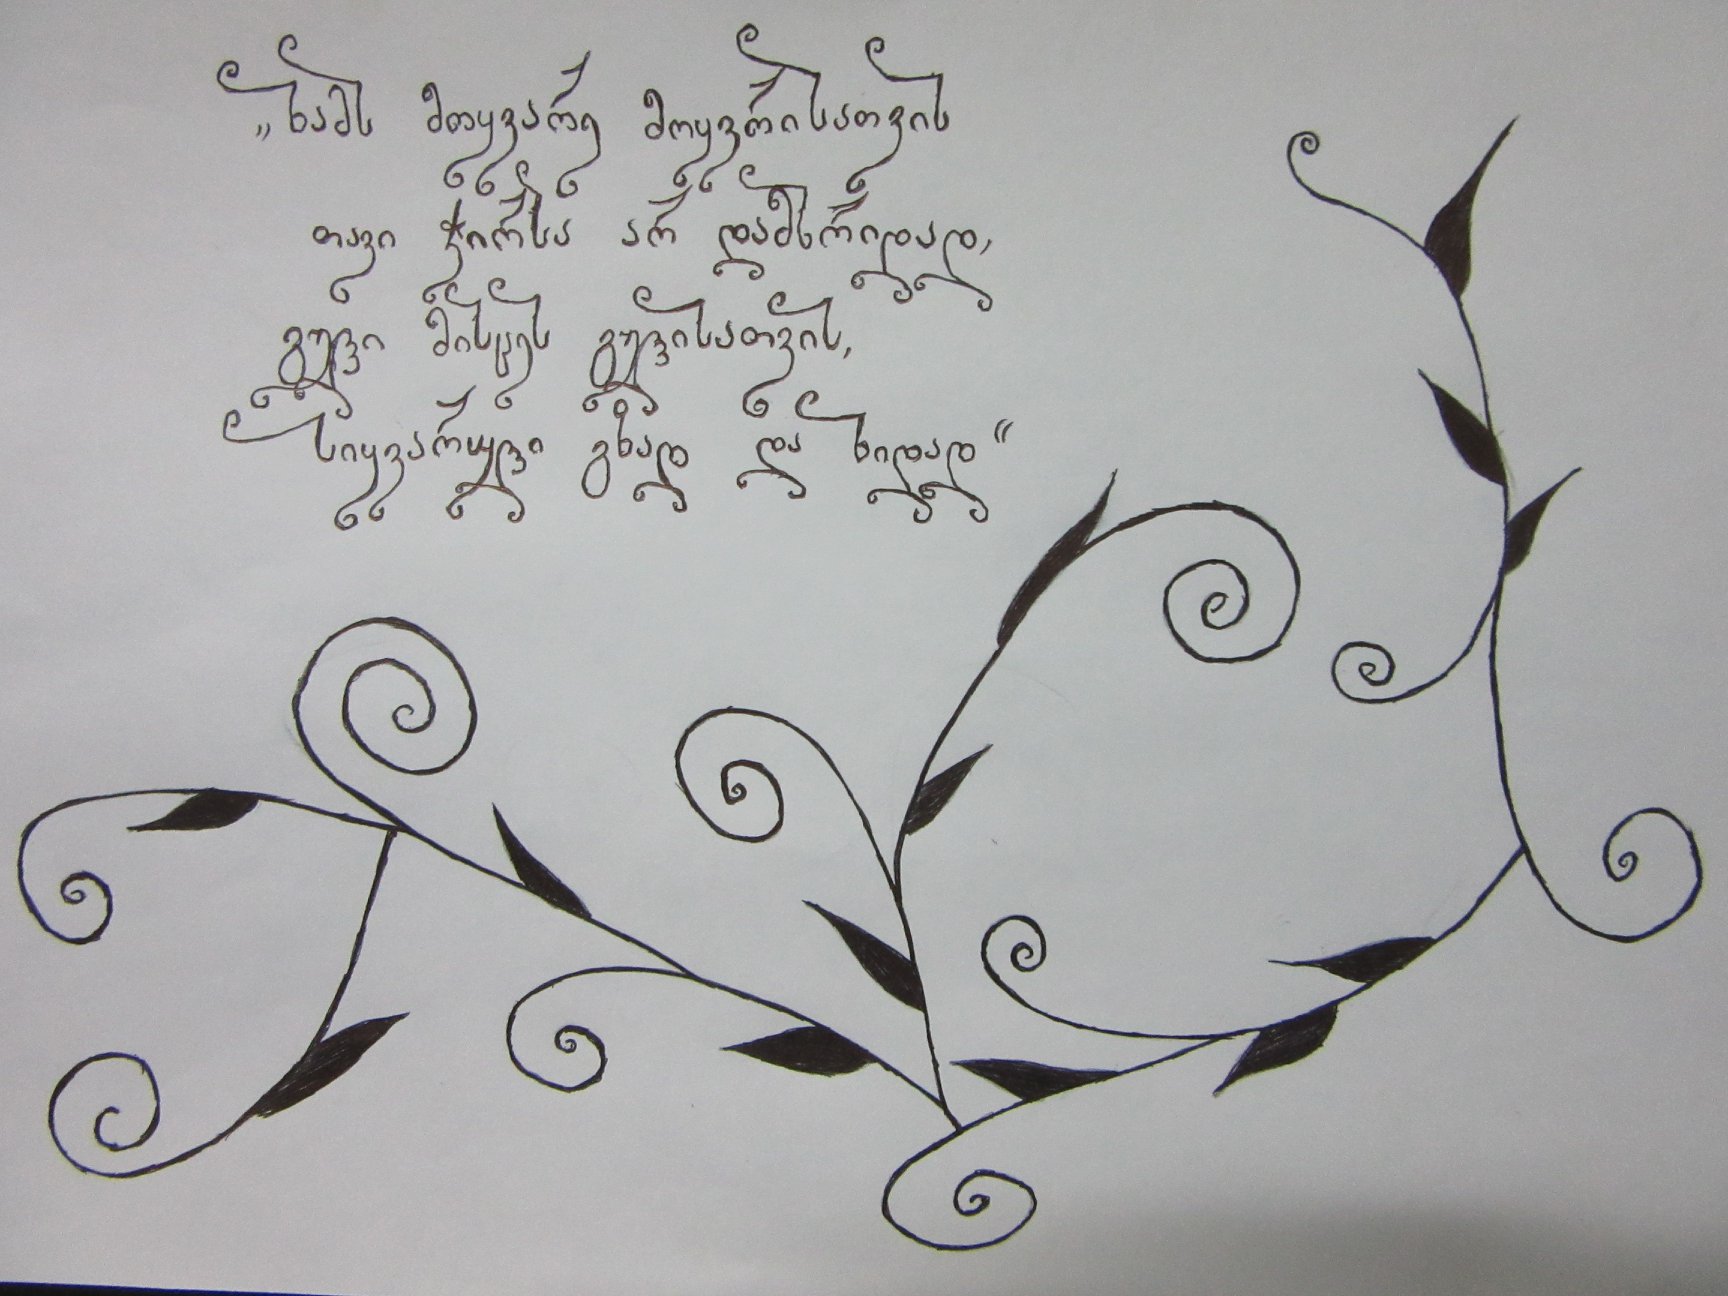 „ხამს მოყვარე მოყვრისათვის
თავი ჭირსა არ დამხრიდად,
გული მისცეს გულისათვის,
სიყვარული გზად და ხიდად“